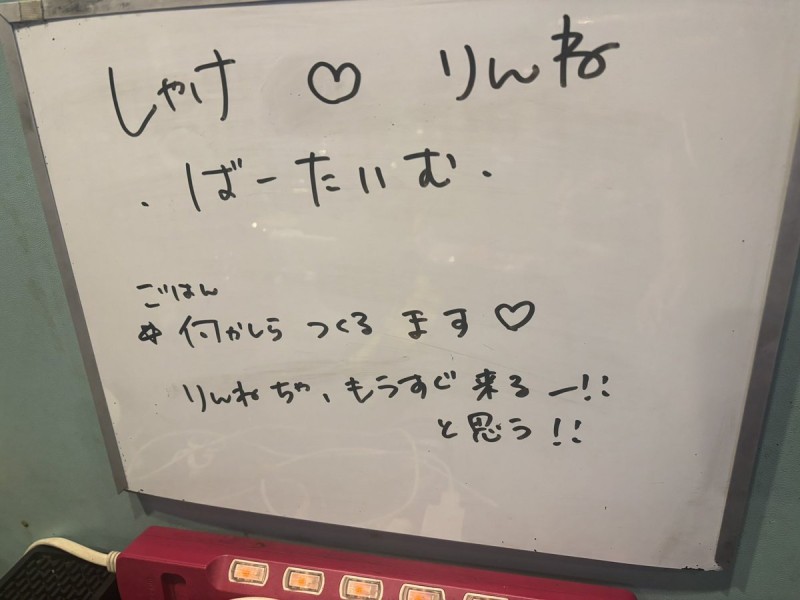 しゃけ ♡ りんね
・ばーたいむ・
ごはん
☆ 何かしら つくる ます ♡
りんねちゃ、もうすぐ 来るー!!
と思う!!